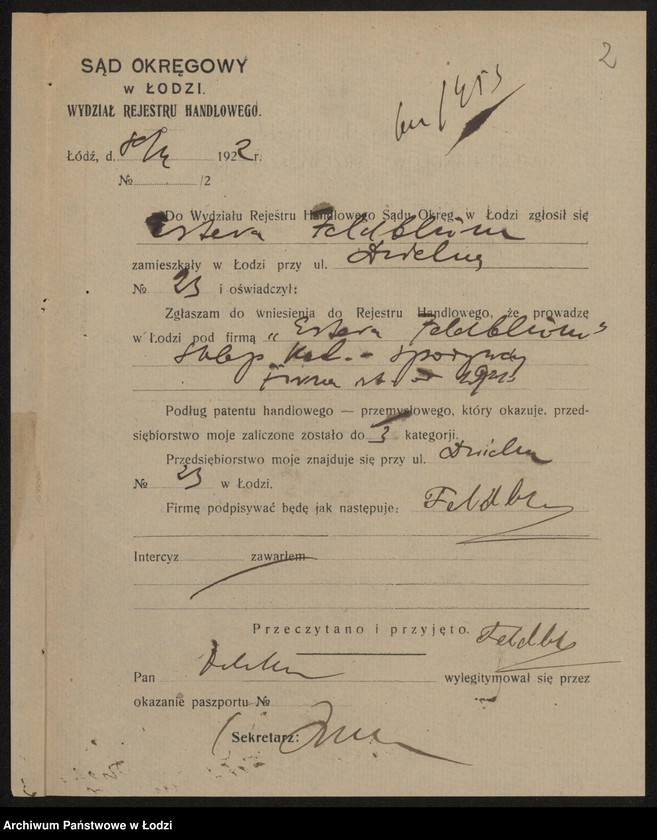 2
SĄD OKRĘGOWY
w ŁODZI.
WYDZIAŁ REJESTRU HANDLOWEGO.
Łódź, d. 1922 r.
№ /2
Do Wydziału Rejestru Handlowego Sądu Okręg. w Łodzi zgłosił się
Estera Feldblum
zamieszkały w Łodzi przy ul. Dzielną
№ 23 i oświadczył:
Zgłaszam do wniesienia do Rejestru Handlowego, że prowadzę
w Łodzi pod firmą "Estera Feldblum"
Sklep Kol. - spożywczy
Firma
Podług patentu handlowego — przemysłowego, który okazuje, przed-
siębiorstwo moje zaliczone zostało do 3 kategorji.
Przedsiębiorstwo moje znajduje się przy ul. Dzielna
№ 23 w Łodzi.
Firmę podpisywać będę jak następuje: Feldbl
Intercyz zawarłem
Przeczytano i przyjęto. Feldbl
Pan wylegitymował się przez
okazanie paszportu №
Sekretarz:
Archiwum Państwowe w Łodzi